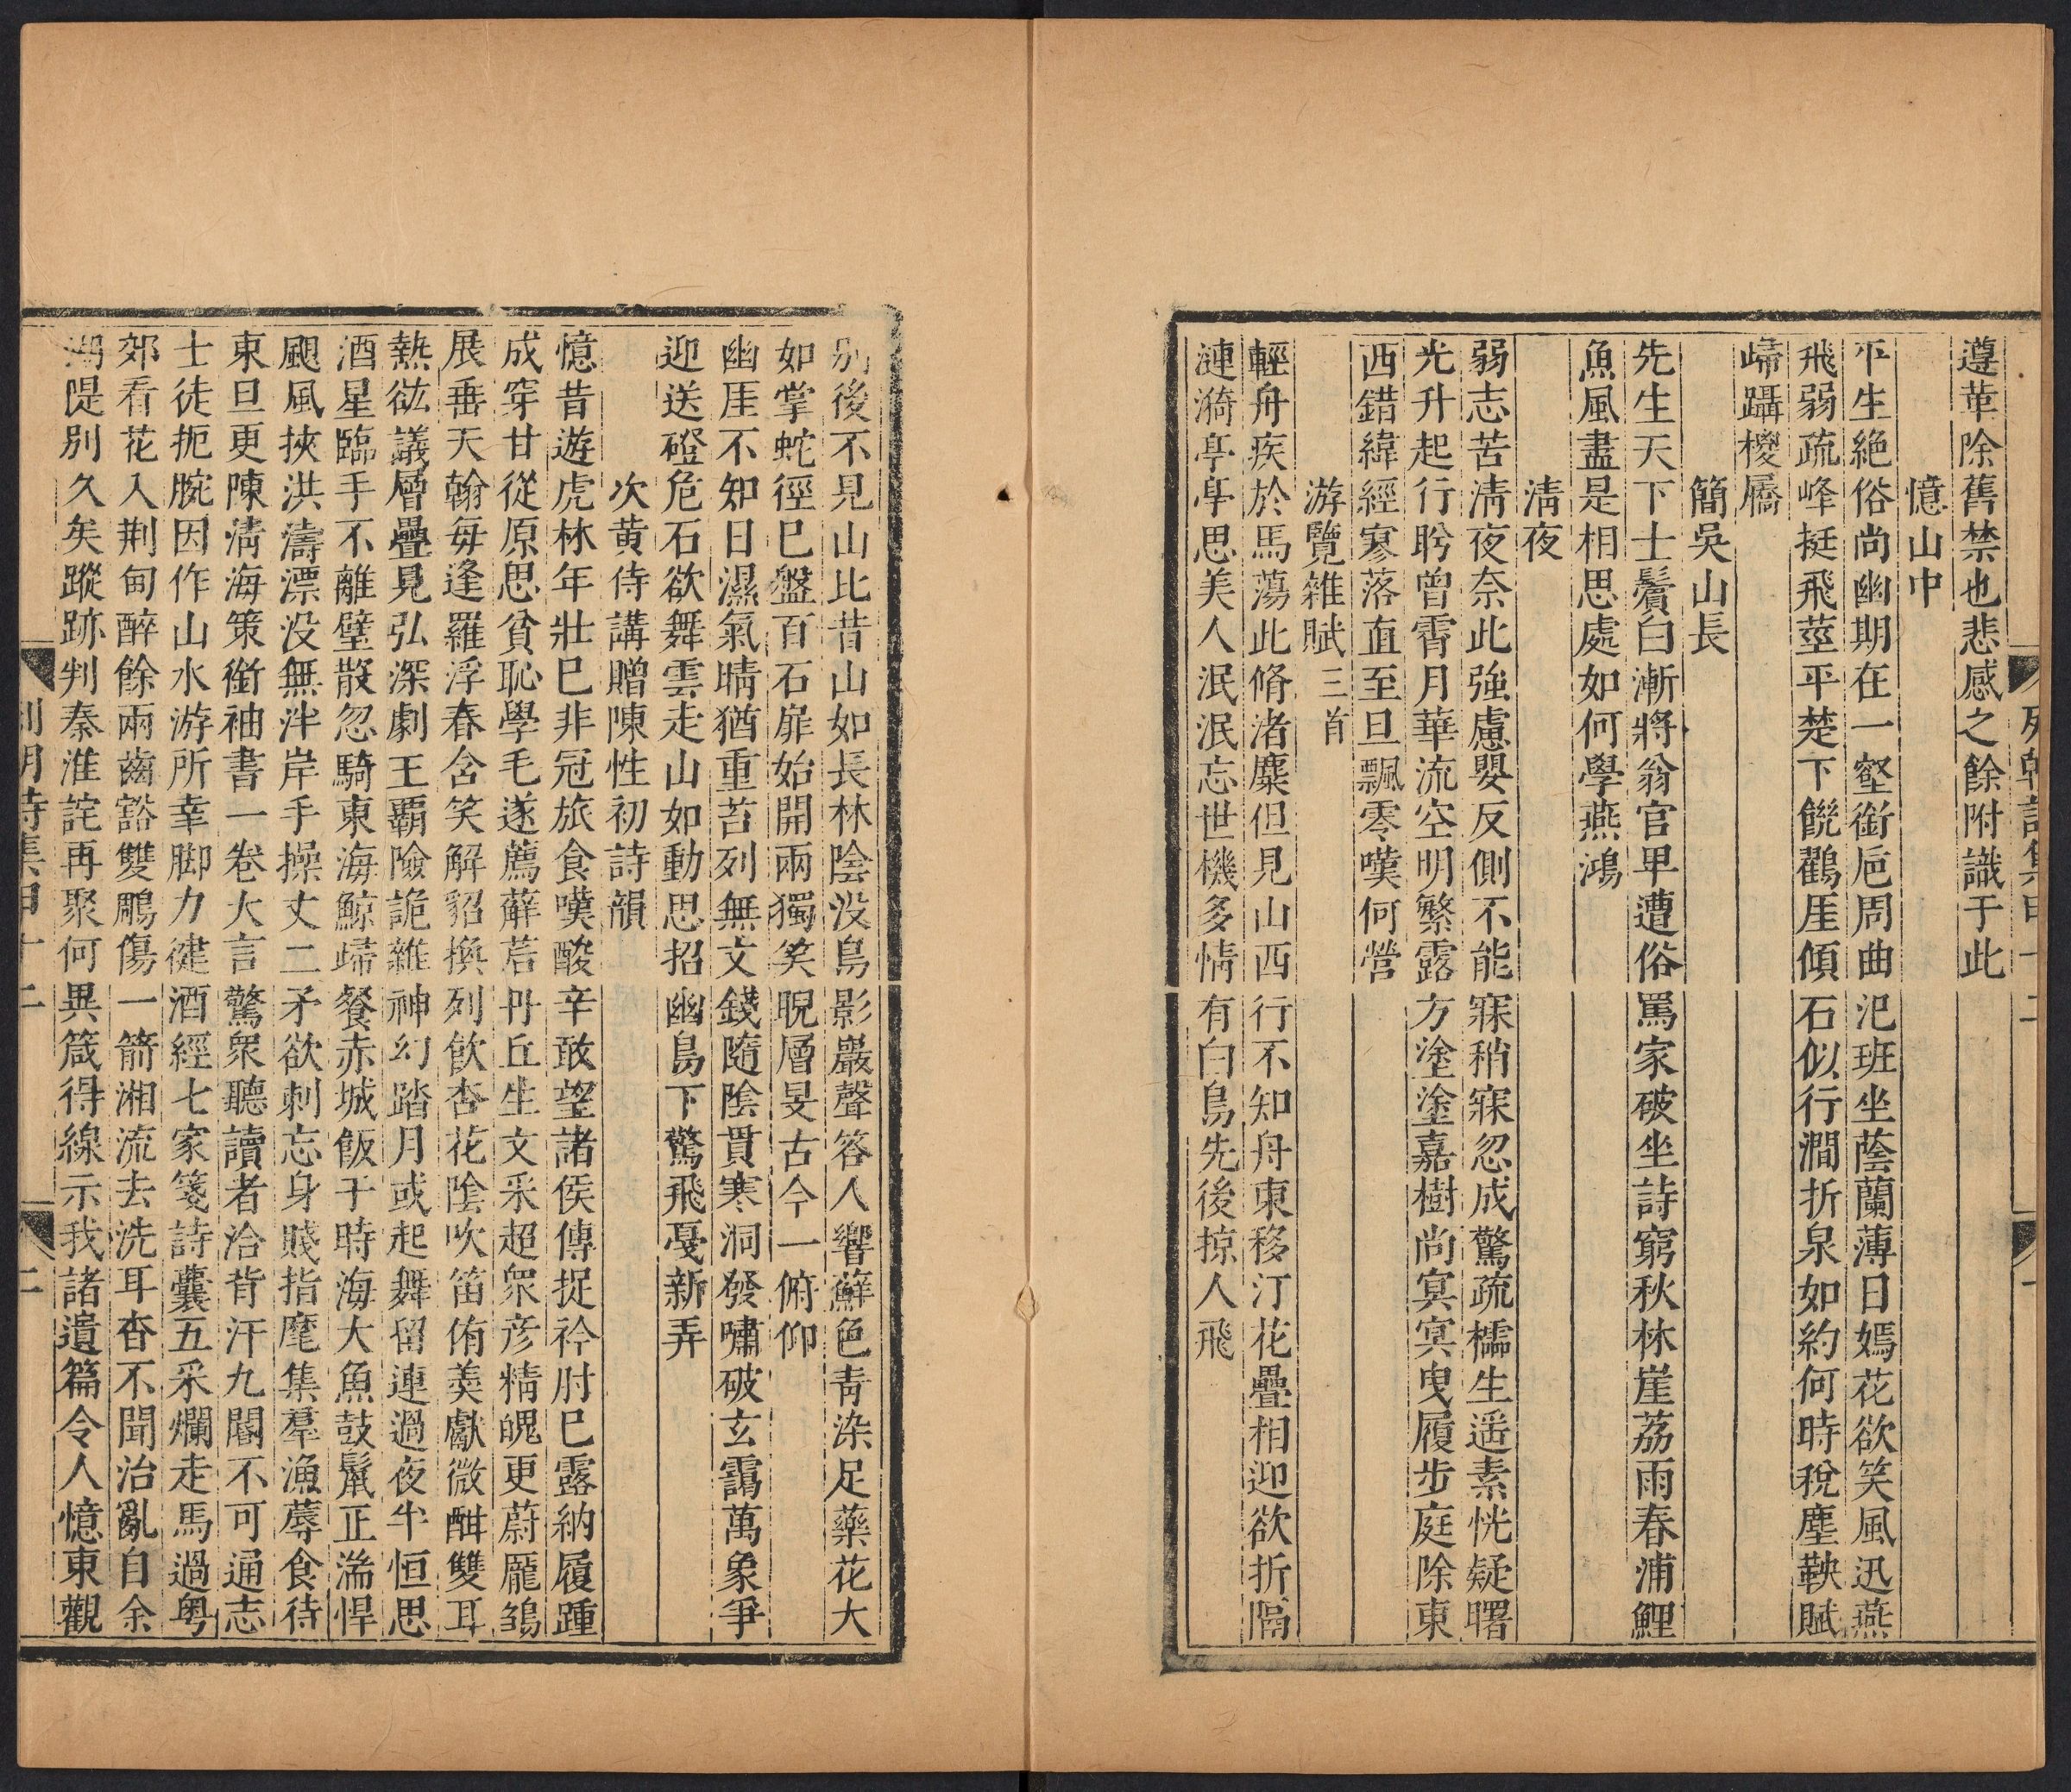 遵革除舊禁也悲感之餘附識于此
憶山中
平生絶俗尚幽期在一壑銜巵周曲汜班坐蔭蘭薄日嫣花欲笑風迅燕
飛弱疏峰挺飛莖平楚下饒鸛厓傾石似行澗折泉如約何時稅塵鞅賦
歸躡㯶屩
簡吳山長
先生天下士鬢白漸將翁官卑遭俗罵家破坐詩窮秋林崖荔雨春浦鯉
魚風盡是相思處如何學燕鴻
清夜
弱志苦清夜奈此強慮嬰反側不能寐稍寐忽成驚疏櫺生遥素恍疑曙
光升起行盻曾霄月華流空明繁露方塗塗嘉樹尚冥冥曳履步庭除東
西錯緯經寥落直至旦飄零嘆何營
游覽雜賦三首
輕舟疾於馬蕩此脩渚麋但見山西行不知舟東移汀花疊相迎欲折隔
漣漪亭亭思美人泯泯忘世機多情有白鳥先後掠人飛
別後不見山比昔山如長林陰没鳥影巖聲答人響蘚色青染足藥花大
如掌蛇徑巳盤百石扉始開兩獨笑睨層旻古今一俯仰
幽厓不知日濕氣晴猶重苔列無文錢隨陰貫寒洞發嘯破玄靄萬象爭
迎送磴危石欲舞雲走山如動思招幽鳥下驚飛戞新弄
次黄侍講贈陳性初詩韻
憶昔遊虎林年壯巳非冠旅食嘆酸辛敢望諸侯傳捉衿肘巳露納履踵
成穿甘從原思貧恥學毛遂薦蘚莒丹丘生文采超衆彦精魄更蔚龎鴝
展垂天翰每逢羅浮春含笑解貂換列飲杏花陰吹笛侑羙獻微酣雙耳
熱紘議層疊見弘深劇王覇險詭雜神幻踏月或起舞留連過夜半恒思
酒星臨手不離璧散忽騎東海鯨歸餐赤城飯于時海大魚鼓鬣正湍悍
颶風挾洪濤漂没無泮岸手操丈二矛欲刺忘身賤指麾集羣漁蓐食待
東旦更陳清海策銜袖書一卷大言驚衆聽讀者洽背汗九閽不可通志
士徒扼腕因作山水游所幸脚力健酒經七家箋詩囊五采爛走馬過粤
郊看花入荆甸醉餘兩齒豁雙鵰傷一箭湘流去洗耳杳不聞治亂自余
湖隄别久矣蹤跡判秦淮詫再聚何異箴得線示我諸遺篇令人憶東觀